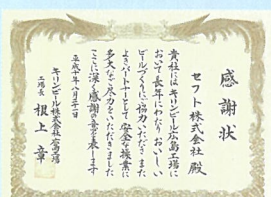 感謝状
セフト株式会社 殿
貴社にはキリンビール広島工場に
おいて長年にわたりおいしい
ビールづくりに協力いただきまた
よきパートナーとして安全な操業に
多大なご尽力をいただきました
ここに深く感謝の意を表します
平成十年八月三十一日
キリンビール株式会社 広島工場
工場長 根上 章